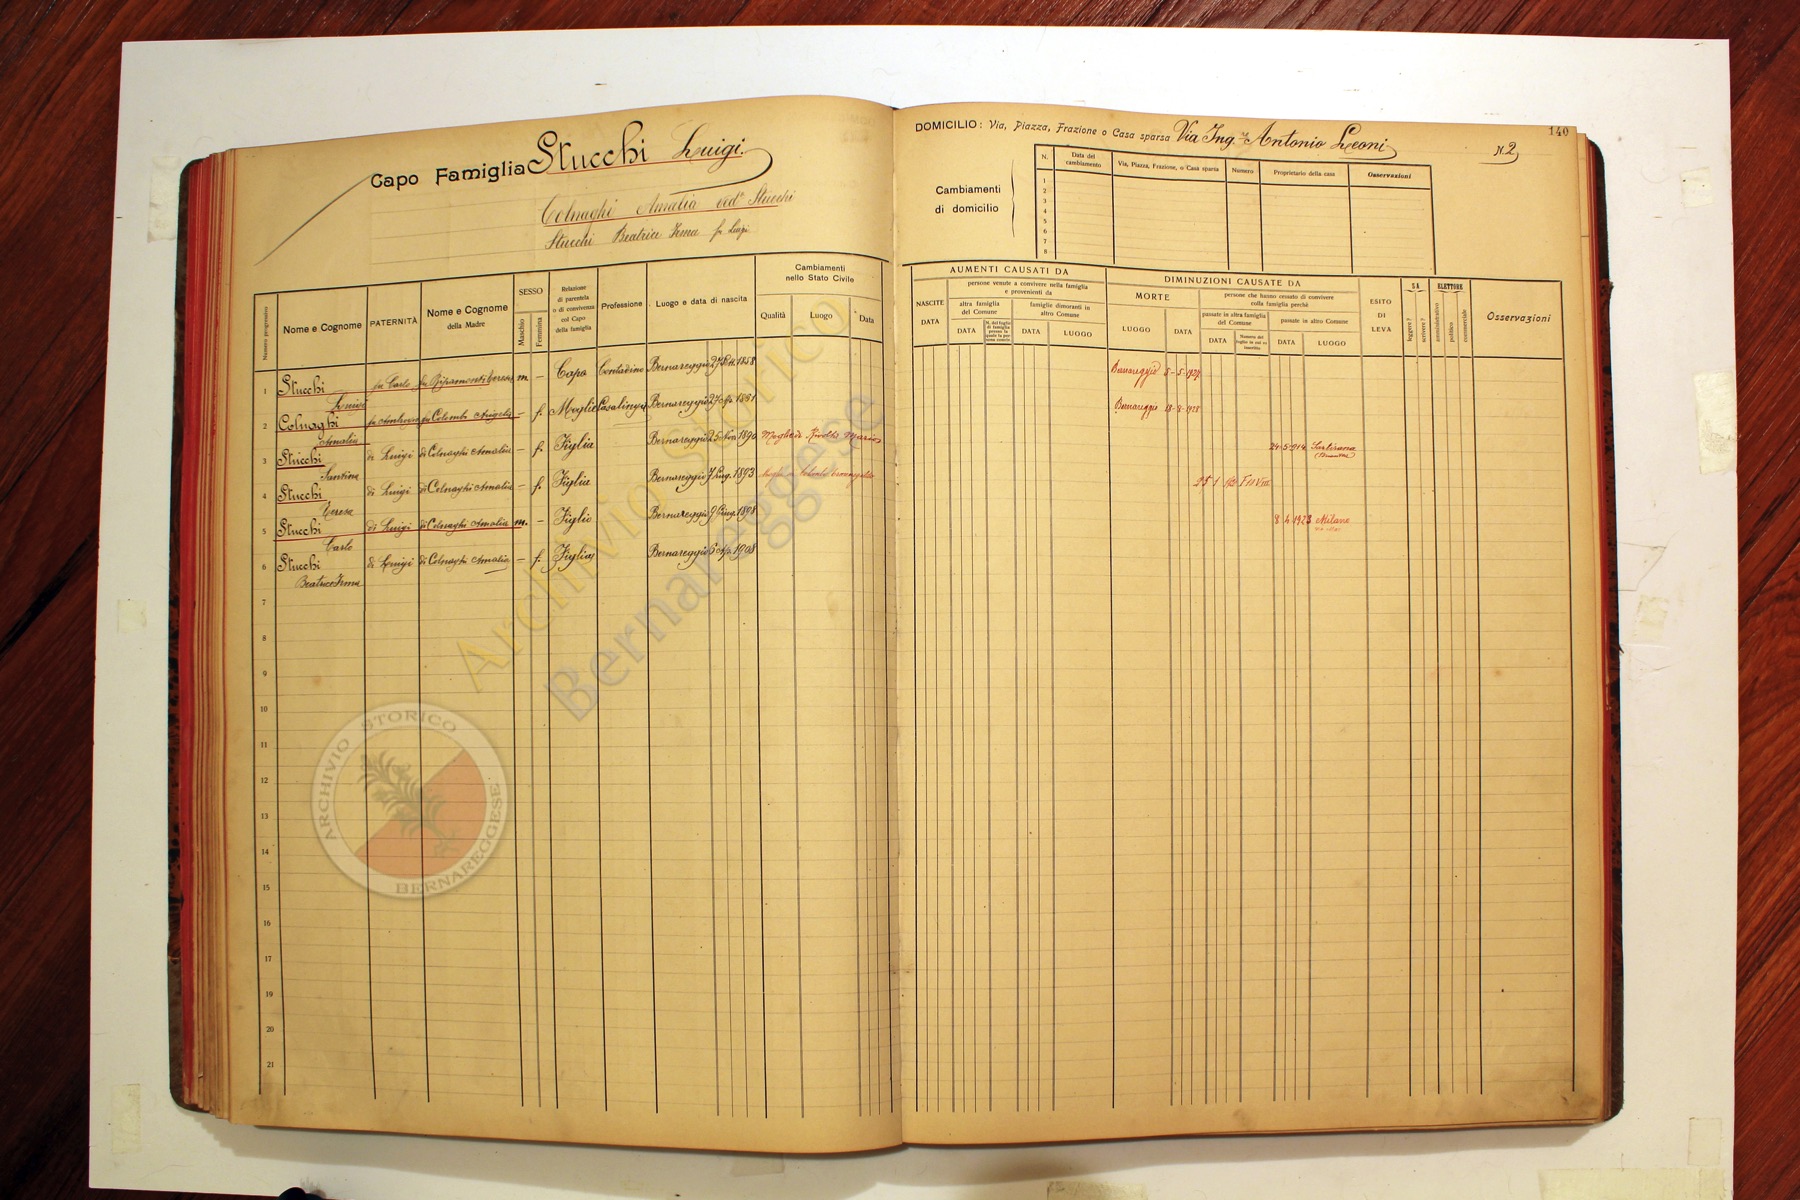 Capo Famiglia Stucchi Luigi.
Colnaghi Amalia ved.ª Stucchi
Stucchi Beatrice Irma fu Luigi
Numero progressivo
Nome e Cognome
PATERNITÀ
Nome e Cognome
della Madre
SESSO
Maschio
Femmina
Relazione
di parentela
o di convivenza
col Capo
della famiglia
Professione
Luogo e data di nascita
Cambiamenti
nello Stato Civile
Qualità
Luogo
Data
1 Stucchi Luigi fu Carlo fu Ripamonti Teresa m. — Capo Contadino Bernareggio 27 1858
2 Colnaghi Amalia fu fu Colombo Angela — f. Moglie Casalinga Bernareggio 27 1861
3 Stucchi Santina di Luigi di Colnaghi Amalia — f. Figlia Bernareggio 25 Nov. 1890 Moglie di Rivolta
4 Stucchi Teresa di Luigi di Colnaghi Amalia — f. Figlia Bernareggio 7 Lug. 1893
5 Stucchi Carlo di Luigi di Colnaghi Amalia m. — Figlio Bernareggio 9 Giug. 1898
6 Stucchi Beatrice Irma di Luigi di Colnaghi Amalia — f. Figlia Bernareggio 6 1908
7
8
9
10
11
12
13
14
15
16
17
18
19
20
21
Archivio Storico
Bernareggese
ARCHIVIO STORICO
BERNAREGGESE
140
DOMICILIO: Via, Piazza, Frazione o Casa sparsa Via Ing.re Antonio Leoni N. 2
Cambiamenti
di domicilio
N.
Data del
cambiamento
Via, Piazza, Frazione, o Casa sparsa
Numero
Proprietario della casa
Osservazioni
1
2
3
4
5
6
7
8
AUMENTI CAUSATI DA
NASCITE
DATA
persone venute a convivere nella famiglia
e provenienti da
altra famiglia
del Comune
DATA
N. del foglio
di famiglia
famiglie dimoranti in
altro Comune
DATA
LUOGO
DIMINUZIONI CAUSATE DA
MORTE
LUOGO
DATA
persone che hanno cessato di convivere
colla famiglia perchè
passate in altra famiglia
del Comune
DATA
Numero del
foglio in cui si
passate in altro Comune
DATA
LUOGO
ESITO
DI
LEVA
SA
leggere?
scrivere?
ELETTORE
amministrativo
politico
commerciale
Osservazioni
Bernareggio 5-5-1927
Bernareggio 18-8-1928
24-5-914 Sartirana
(Brianza)
25 1
8 4 1923 Milano